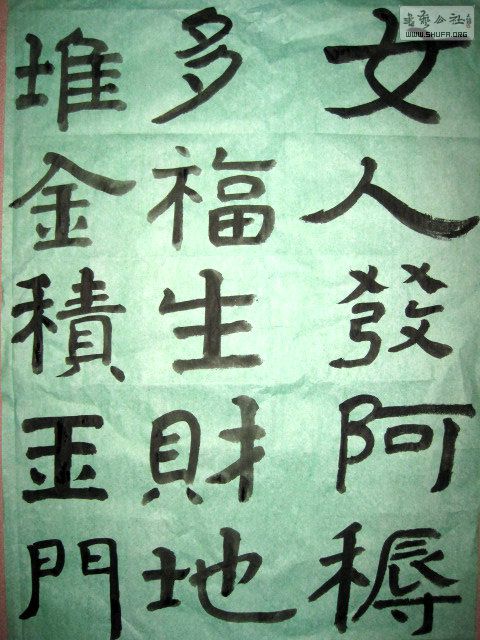 女人發阿稺
多福生財地
堆金積玉門
書藝公社
WWW.SHUFA.ORG